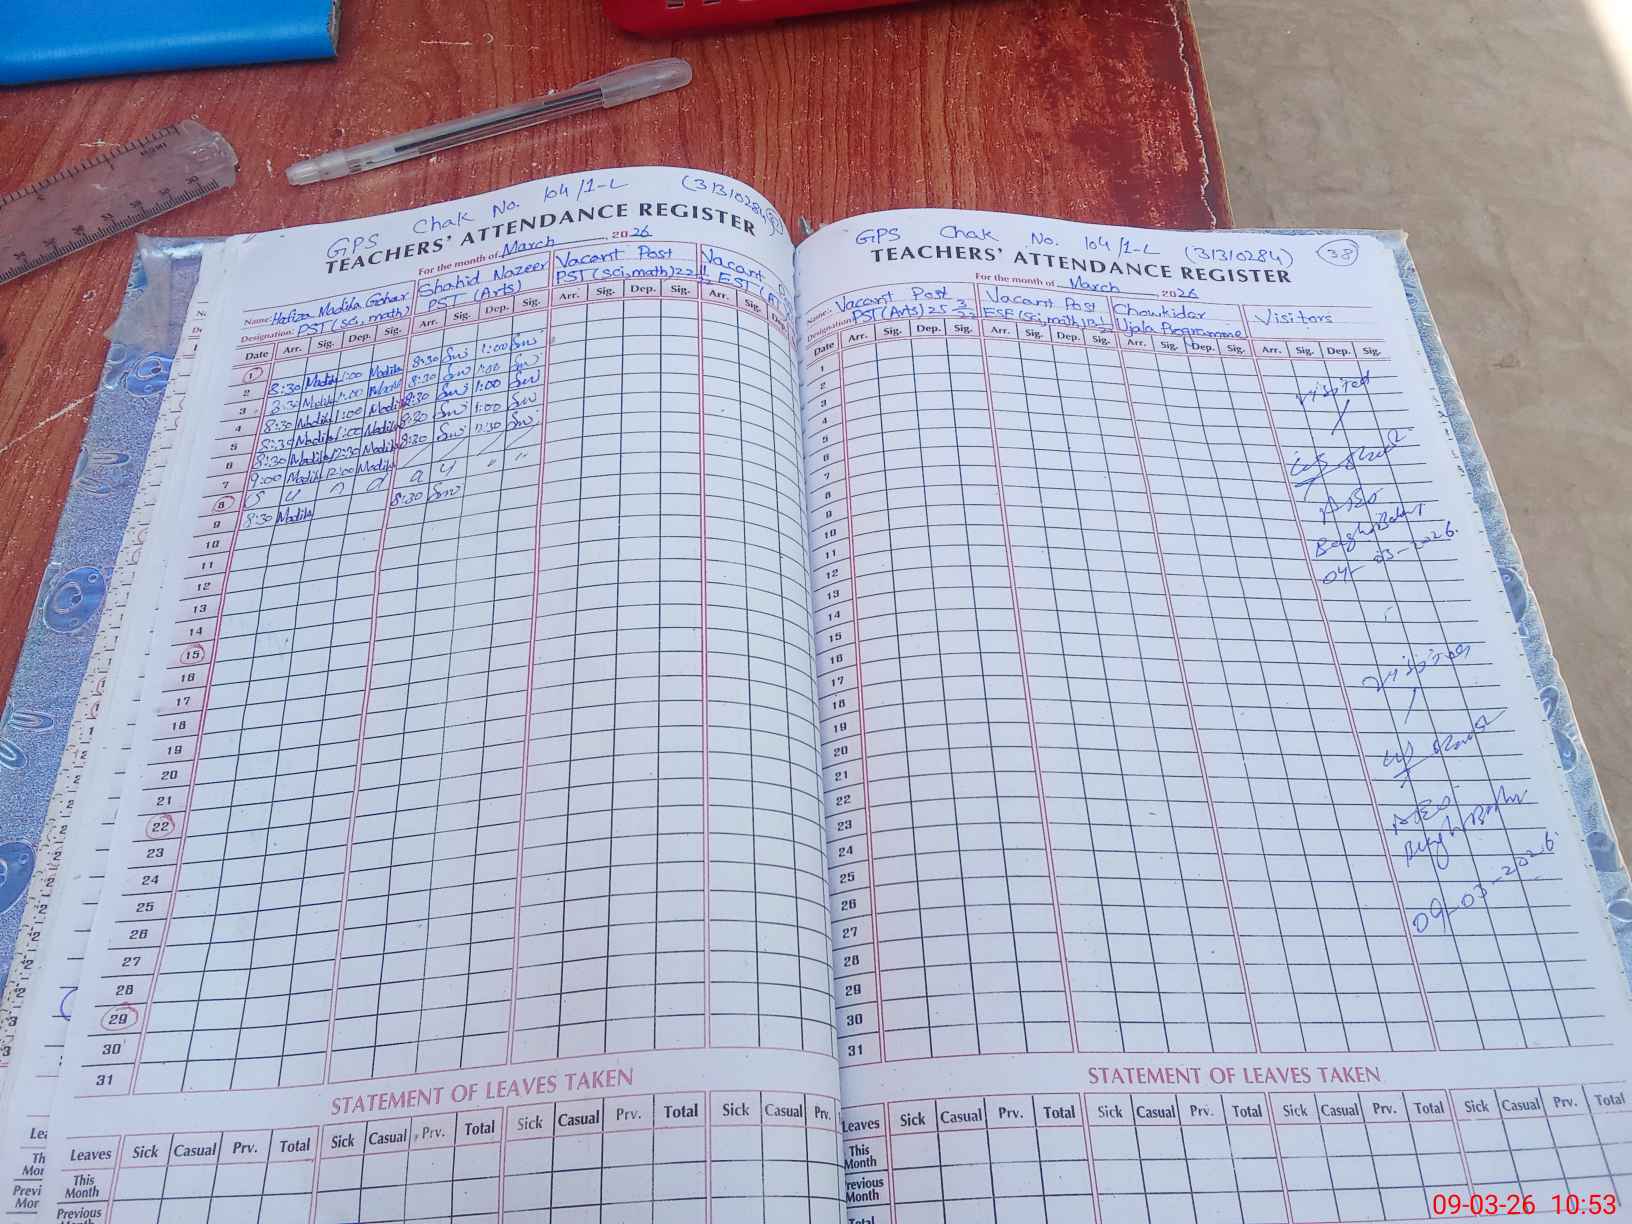 GPS Chak No. 104/1-L (31310284)
TEACHERS' ATTENDANCE REGISTER
For the month of March, 2026
Name: Hafiza Madiha Gohar
Shahid Nazeer
Vacant Post
Vacant
Designation: PST (Sci, math)
PST (Arts)
PST (Sci, math) 22
EST
Date Arr. Sig. Dep. Sig. Arr. Sig. Dep. Sig. Arr. Sig. Dep. Sig. Arr. Sig. Dep.
1
2 8:30 Madiha 1:00 Madiha 8:30 1:00
3 8:30 Madiha 1:00 8:30 1:00
4 8:30 Madiha 1:00 Madiha 8:30 1:00
5 8:30 Madiha 1:00 Madiha 8:30 1:00
6 8:30 Madiha 12:30 Madiha 8:30 12:30
7 9:00 Madiha 12:00 Madiha
8 S u n d a y " "
9 8:30 Madiha 8:30
10
11
12
13
14
15
16
17
18
19
20
21
22
23
24
25
26
27
28
29
30
31
STATEMENT OF LEAVES TAKEN
Leaves Sick Casual Prv. Total Sick Casual Prv. Total Sick Casual Prv. Total Sick Casual Prv.
This Month
Previous
GPS Chak No. 104/1-L (31310284) 38
TEACHERS' ATTENDANCE REGISTER
For the month of March, 2026
Name: Vacant Post
Vacant Post
Chowkidar
Visitors
Designation PST (Arts) 25
ESE (Sci, math)
Ujala Programme
Date Arr. Sig. Dep. Sig. Arr. Sig. Dep. Sig. Arr. Sig. Dep. Sig. Arr. Sig. Dep. Sig.
1
2
3
4
5
6
7
8
9
10
11
12
13
14
15
16
17
18
19
20
21
22
23
24
25
26
27
28
29
30
31
visited
AEO
04-03-2026.
visited
AEO
09-03-2026
STATEMENT OF LEAVES TAKEN
Leaves Sick Casual Prv. Total Sick Casual Prv. Total Sick Casual Prv. Total Sick Casual Prv. Total
This Month
Previous Month
Total
09-03-26 10:53